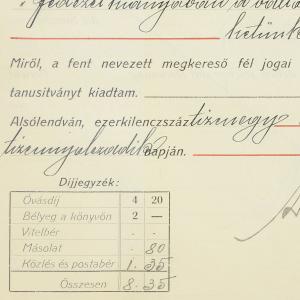 fedezet hiányában a
Miről, a fent nevezett megkereső fél jogai
tanusitványt kiadtam.
Alsólendván, ezerkilenczszáz tizmegy
tizennyolczadik napján.
Díjjegyzék:
Óvásdíj 4 20
Bélyeg a könyvön 2 —
Vitelbér - -
Másolat - 80
Közlés és postabér 1. 35
Összesen 8. 35